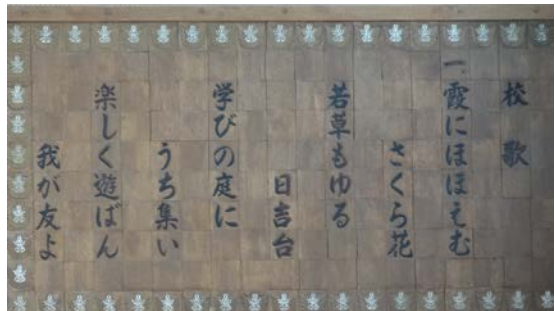 校歌
一、霞にほほえむ
さくら花
若草もゆる
日吉台
学びの庭に
うち集い
楽しく遊ばん
我が友よ